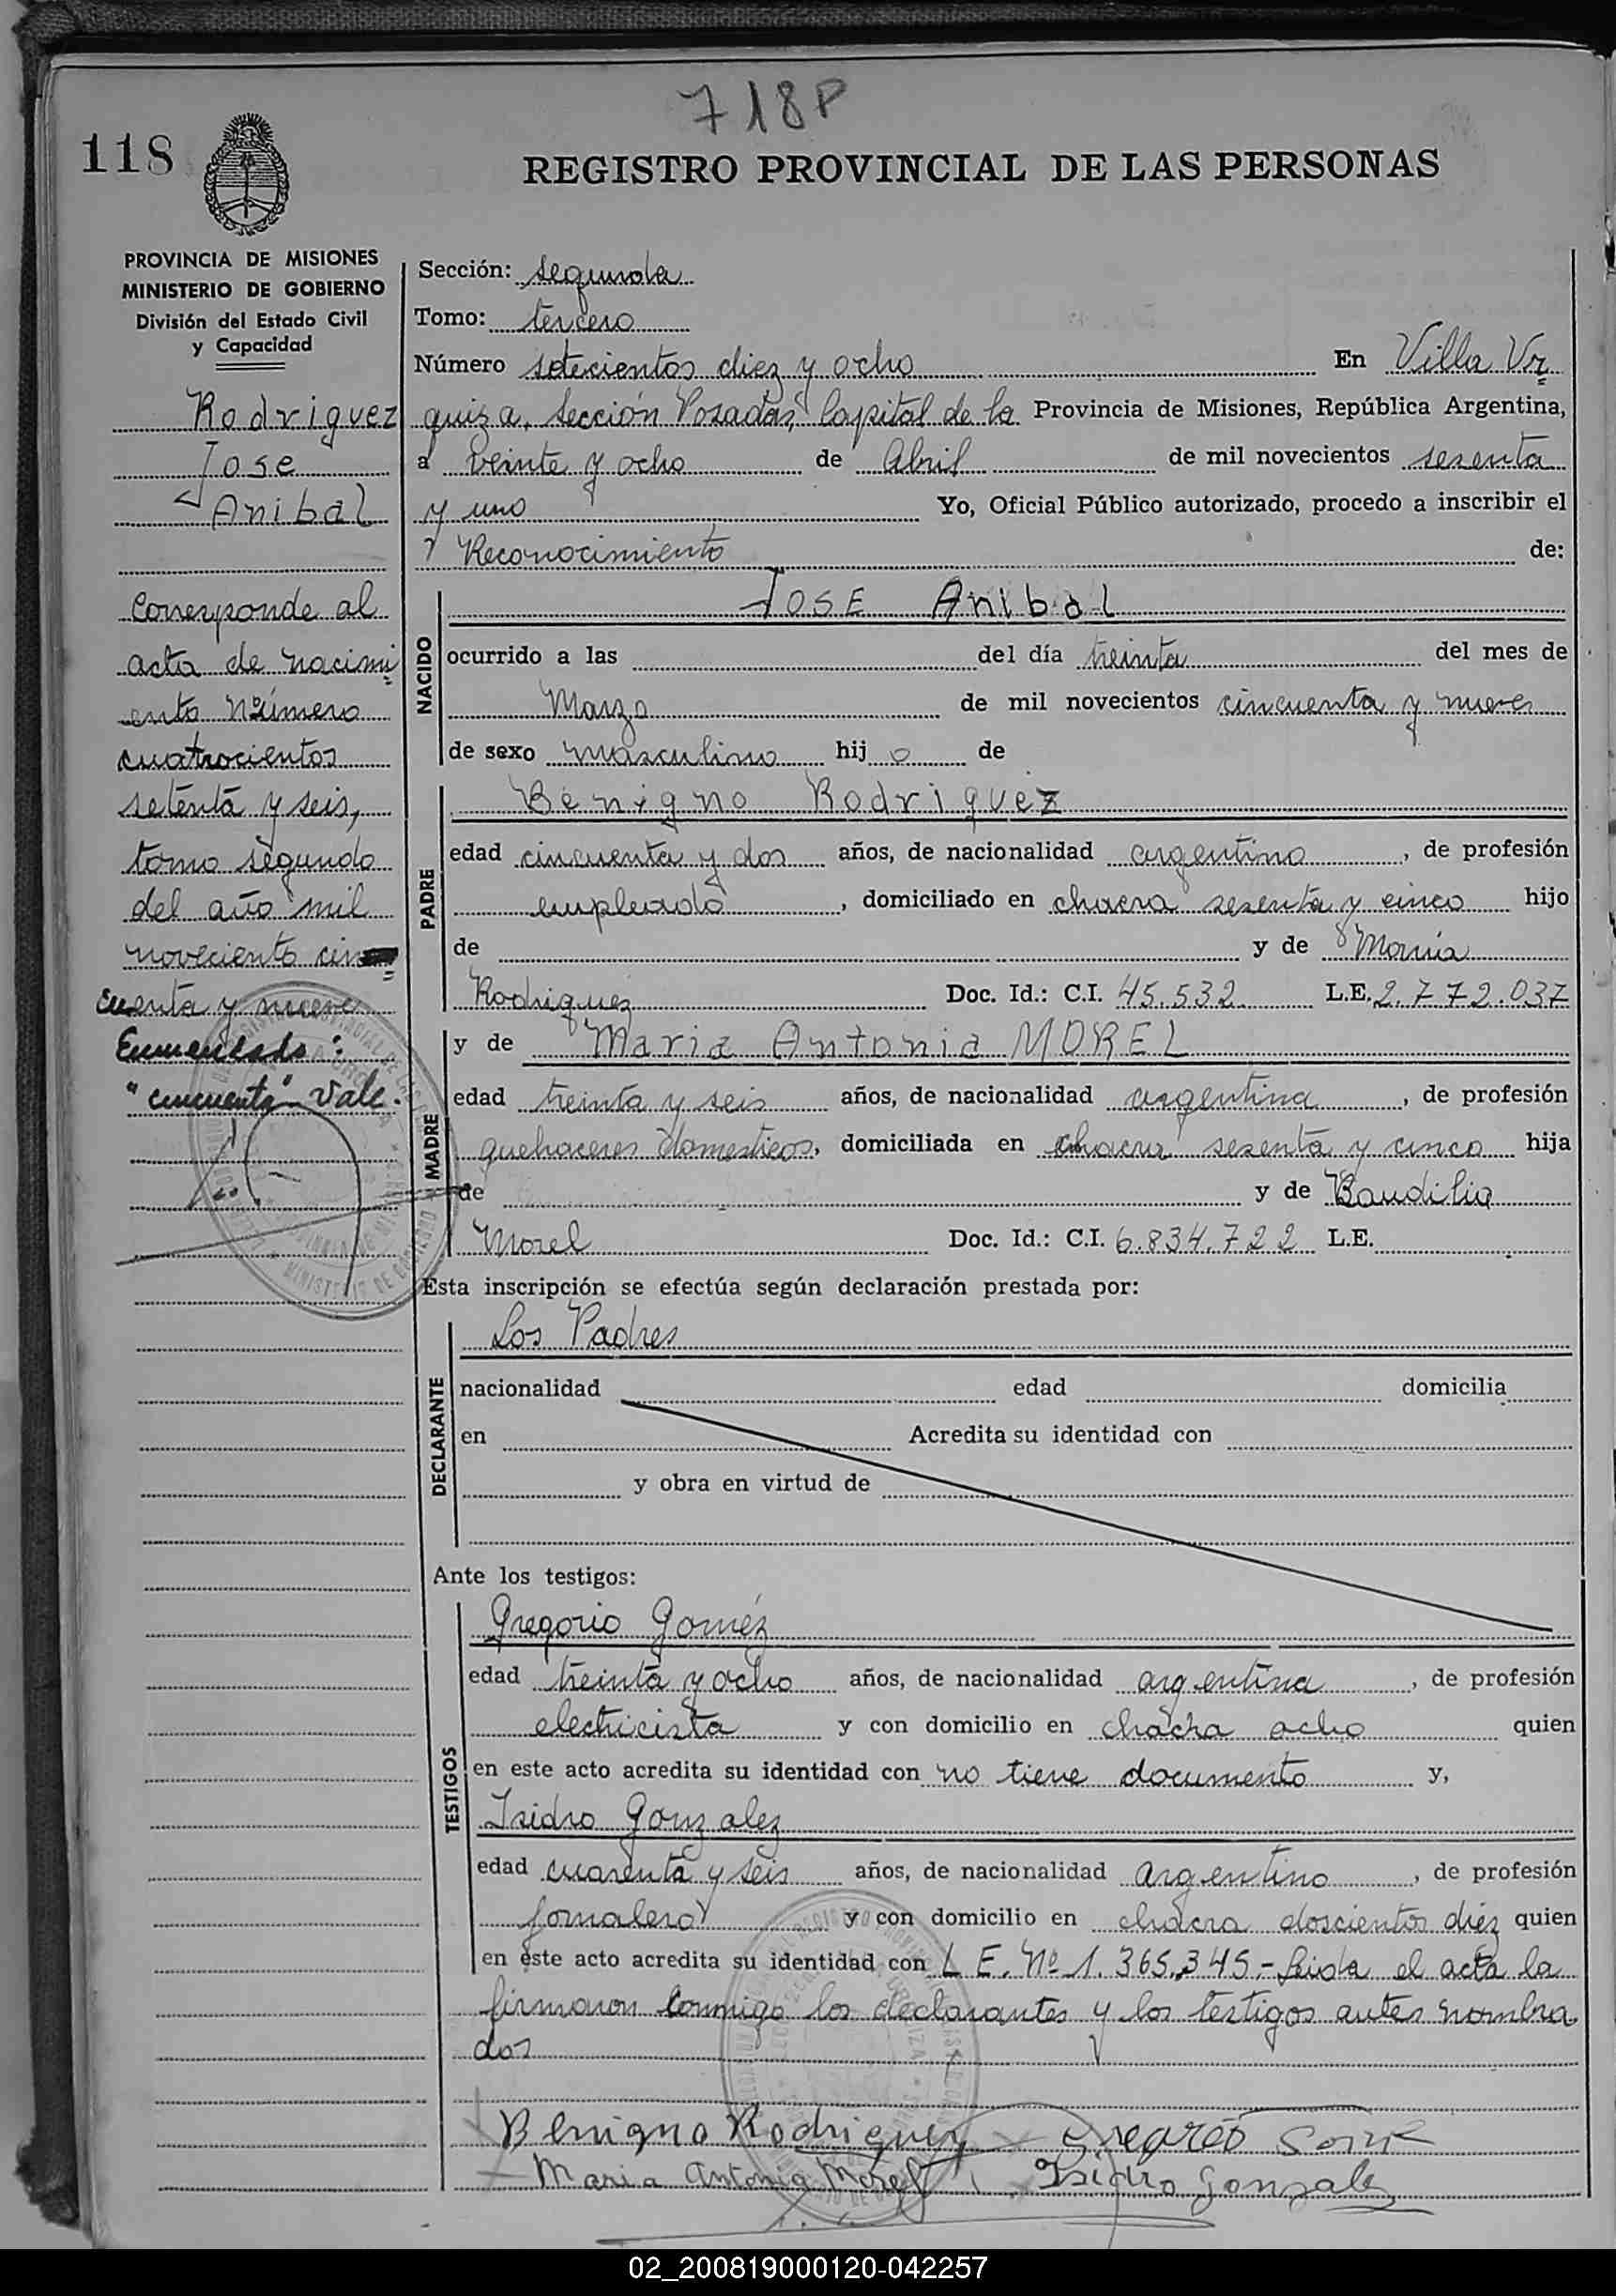 718P
118
REGISTRO PROVINCIAL DE LAS PERSONAS
PROVINCIA DE MISIONES
MINISTERIO DE GOBIERNO
División del Estado Civil
y Capacidad
Rodriguez
Jose
Anibal
Corresponde al
acta de nacimi
ento número
cuatrocientos
setenta y seis,
tomo segundo
del año mil
noveciento cin
cuenta y nueve
Enmendado:
"cincuenta" Vale.
Sección: segunda
Tomo: tercero
Número setecientos diez y ocho En Villa Ur
quiza, Sección Posadas, Capital de la Provincia de Misiones, República Argentina,
a veinte y ocho de Abril de mil novecientos sesenta
y uno Yo, Oficial Público autorizado, procedo a inscribir el
Reconocimiento de:
NACIDO
JOSE Anibal
ocurrido a las del día treinta del mes de
Marzo de mil novecientos cincuenta y nueve
de sexo masculino hij o de
PADRE
Benigno Rodriguez
edad cincuenta y dos años, de nacionalidad argentino, de profesión
empleado, domiciliado en chacra sesenta y cinco hijo
de y de Maria
Rodriguez Doc. Id.: C.I. 45.532 L.E. 2.772.037
MADRE
y de Maria Antonia MOREL
edad treinta y seis años, de nacionalidad argentina, de profesión
quehaceres domesticos, domiciliada en chacra sesenta y cinco hija
de y de Baudilia
Morel Doc. Id.: C.I. 6.834.722 L.E.
Esta inscripción se efectúa según declaración prestada por:
DECLARANTE
Los Padres
nacionalidad edad domicilia
en Acredita su identidad con
y obra en virtud de
Ante los testigos:
TESTIGOS
Gregorio Goméz
edad treinta y ocho años, de nacionalidad argentina, de profesión
electricista y con domicilio en chacra ocho quien
en este acto acredita su identidad con no tiene documento y,
Isidro Gonzalez
edad cuarenta y seis años, de nacionalidad argentino, de profesión
jornalero y con domicilio en chacra doscientos diéz quien
en este acto acredita su identidad con L E. Nº 1.365.345.- Leida el acta la
firmaron conmigo los declarantes y los testigos antes nombra
dos
Benigno Rodriguez
Maria Antonia Morel Isidro Gonzalez
02_200819000120-042257